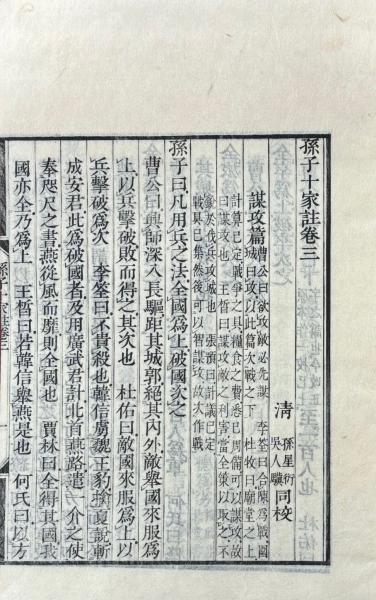 孫子十家註卷三
清 孫星衍 吳人驥 同校
謀攻篇 曹公曰欲攻敵必先謀 李筌曰合陳爲戰圍
城曰攻以此篇次戰之下 杜牧曰廟堂之上
計算已定戰爭之具糧食之費悉已周備可以謀攻故
曰謀攻也 王晳曰謀攻敵之利害當全策以取之不
銳於伐兵攻城也 張預曰計議已定
戰具已集然後可以智謀攻故次作戰
孫子曰凡用兵之法全國爲上破國次之
曹公曰興師深入長驅距其城郭絕其內外敵舉國來服爲
上以兵擊破敗而得之其次也 杜佑曰敵國來服爲上以
兵擊破爲次 李筌曰不貴殺也韓信虜魏王豹擒夏說斬
成安君此爲破國者及用廣武君計北首燕路遣一介之使
奉咫尺之書燕從風而靡則全國也 賈林曰全得其國我
國亦全乃爲上 王晳曰若韓信舉燕是也 何氏曰以方
孫子十家註卷三